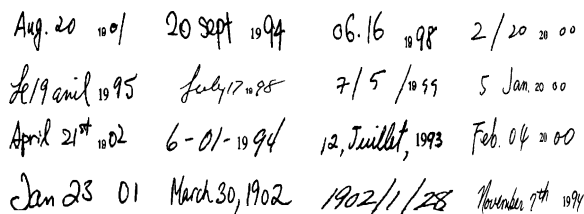 Aug. 20 1901 20 sept 1994 06.16 1998 2/20 2000
Le 19 avril 1995 July 17 1998 7/5/1999 5 Jan. 2000
April 21st 1902 6-01-1994 12, Juillet, 1993 Feb. 04 2000
Jan 23 01 March 30, 1902 1902/1/28 November 7th 1994